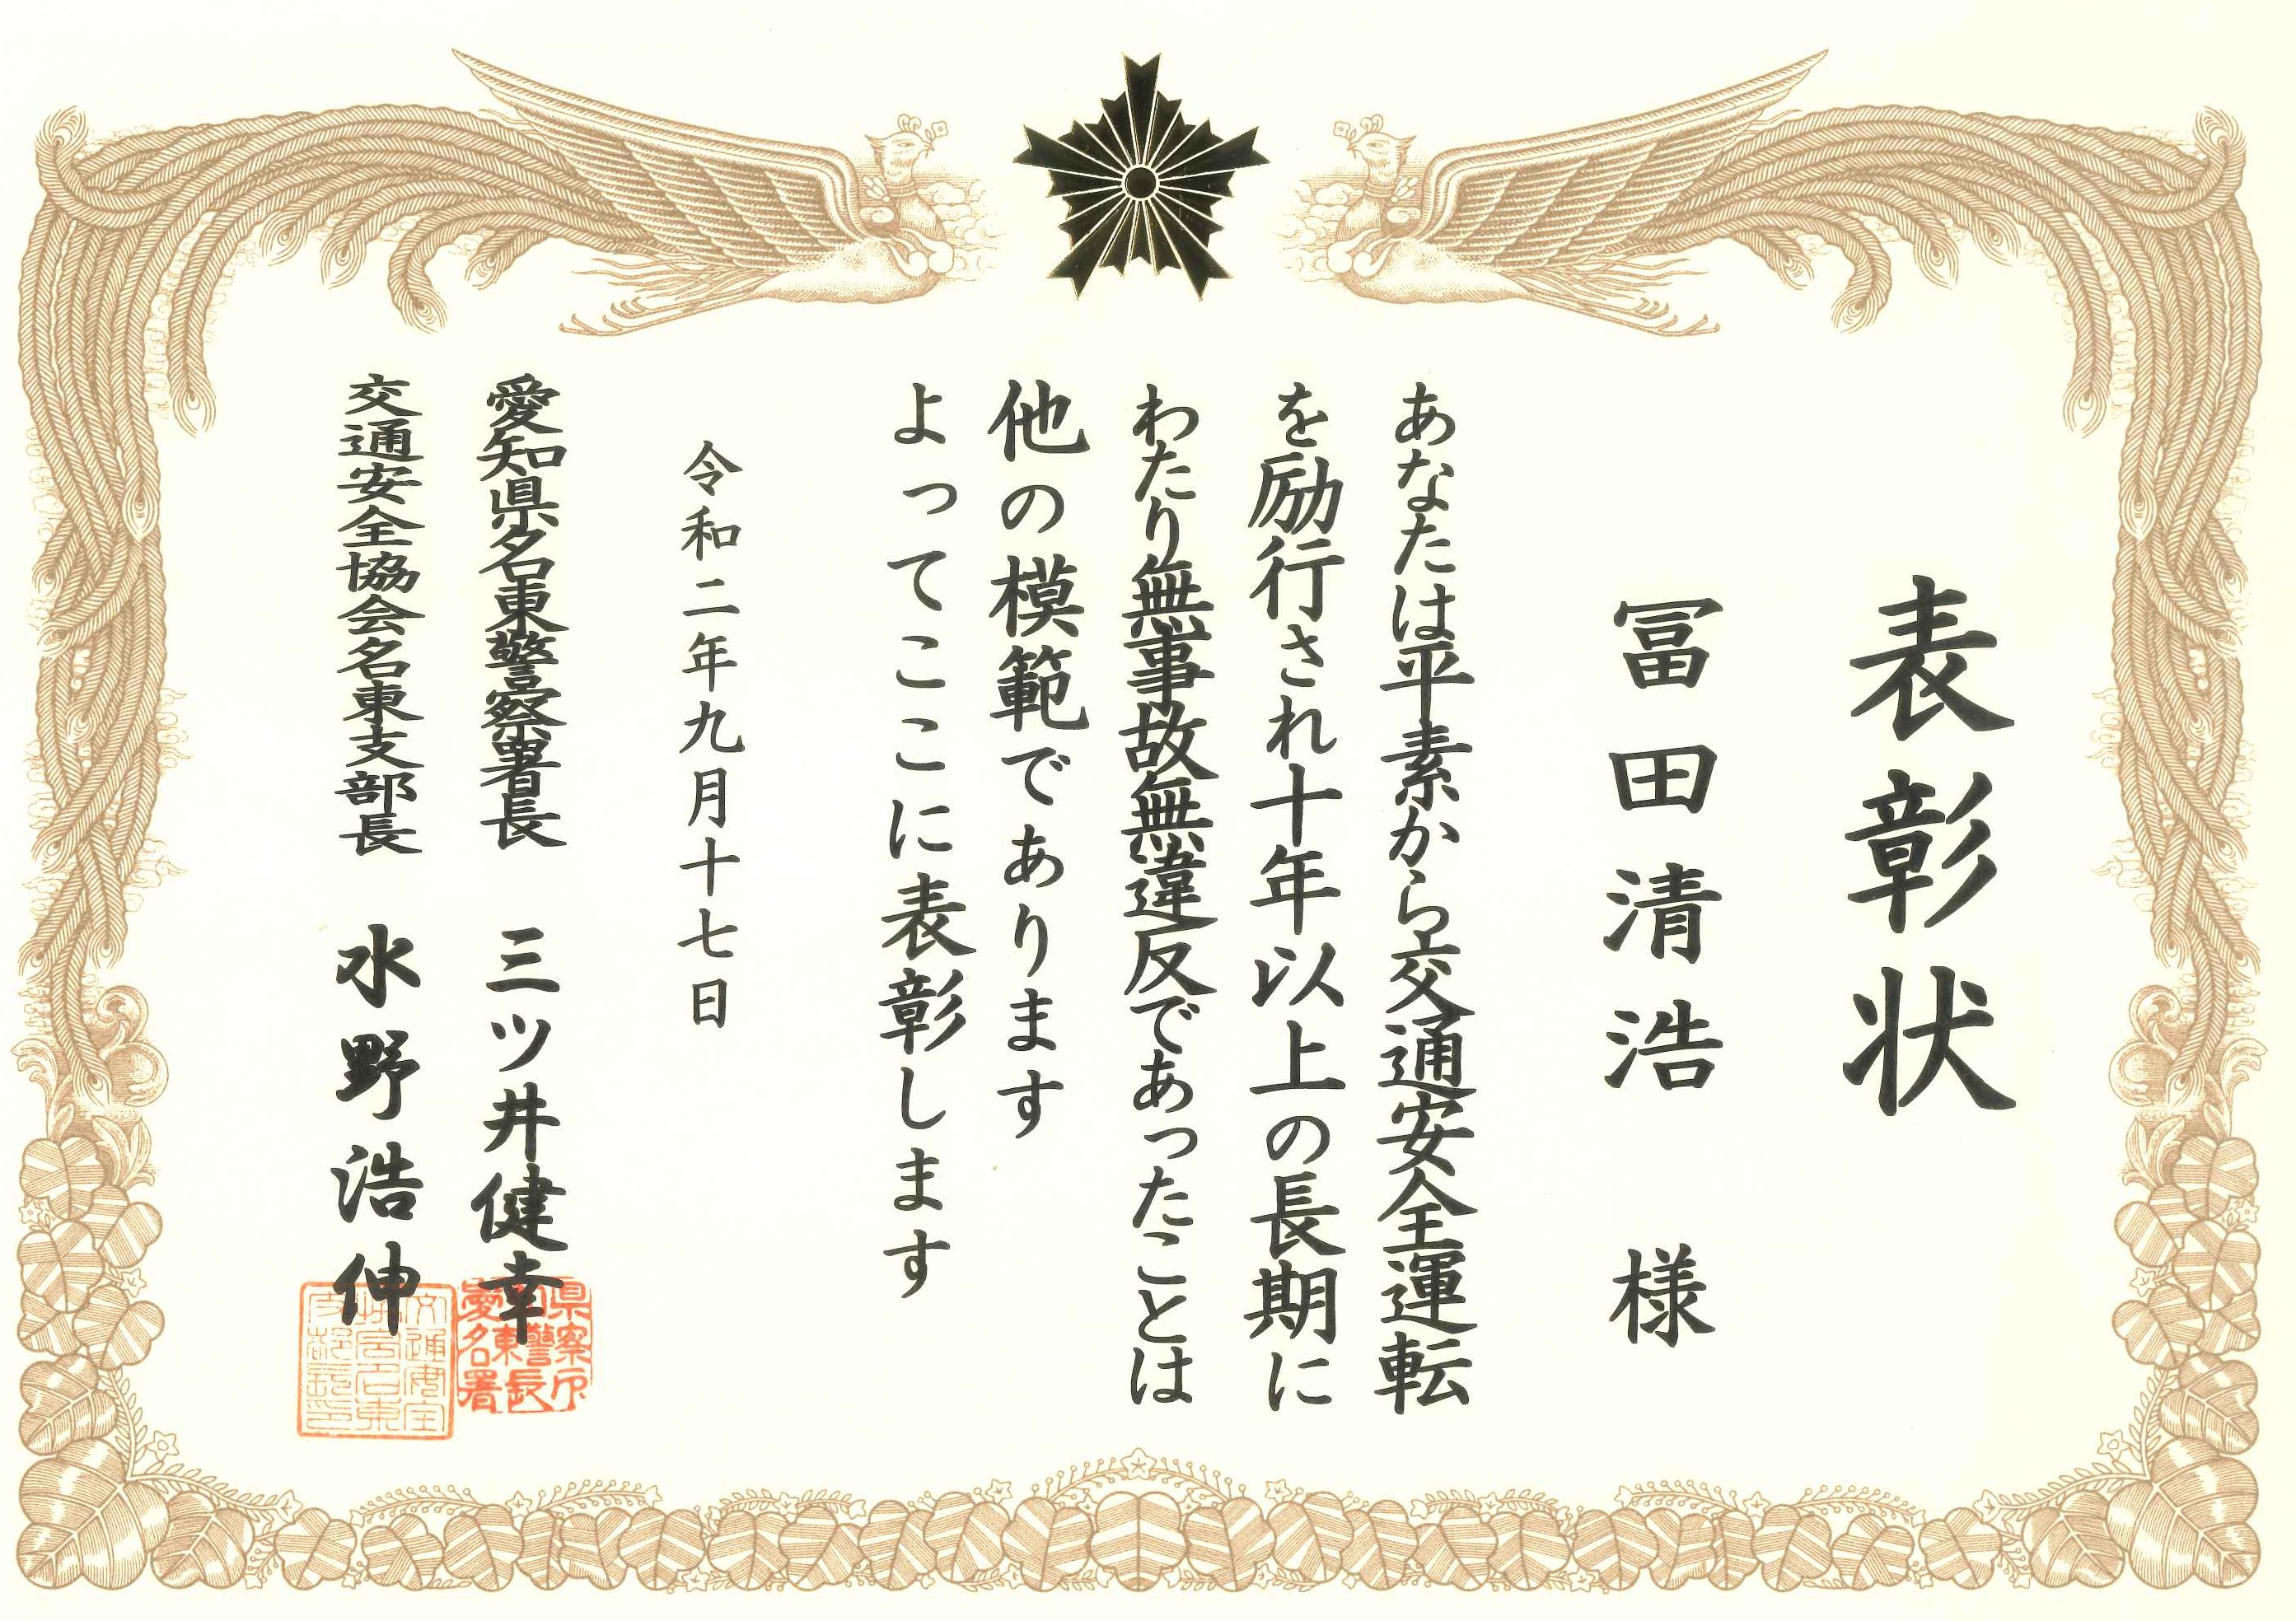 表彰状
冨田清浩 様
あなたは平素から交通安全運転
を励行され十年以上の長期に
わたり無事故無違反であったことは
他の模範であります
よってここに表彰します
令和二年九月十七日
愛知県名東警察署長 三ツ井健幸
交通安全協会名東支部長 水野浩伸